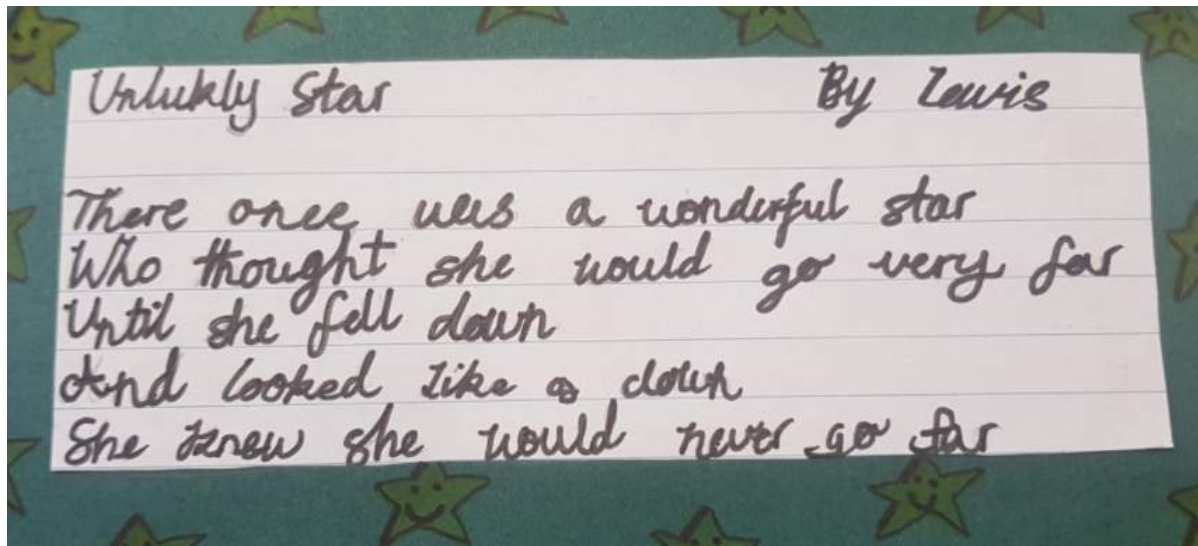 Unlukly Star By Lewis
There once was a wonderful star
Who thought she would go very far
Until she fell down
And looked like a clown
She knew she would never go far